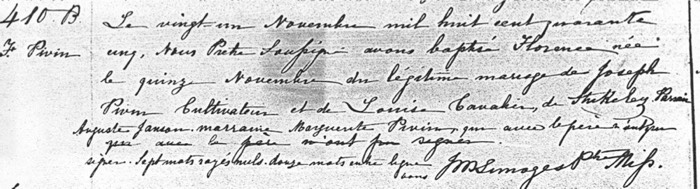 410 B Le vingt-un Novembre mil huit cent quarante
F. Pivin cinq, Nous Prêtre Soussigné avons baptisé Florence née
le quinze Novembre du légitime mariage de Joseph
Pivin Cultivateur et de Louise Cavalier, de Stukeley, Parrain
Auguste Janson. marraine Marguerite Pivin, qui avec le père n'ont pu
qui avec le père n'ont pu signer.
signer. Sept mots rayés nuls. douze mots entre ligne
bons JMLimoges Ptre Miss.